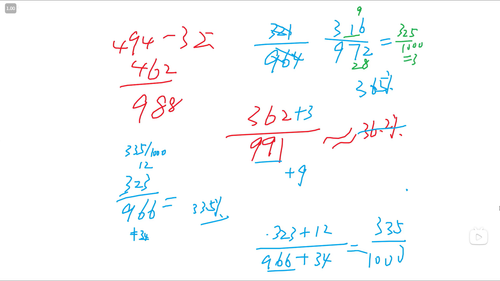 1.00
494-3Σ
462
988
321
964
9
316
972
28
=
325
1000
=3
362+3
991
+9
36.2%
335/1000
12
323
966 =
+34
335%
323+12
966+34
=
335
1000